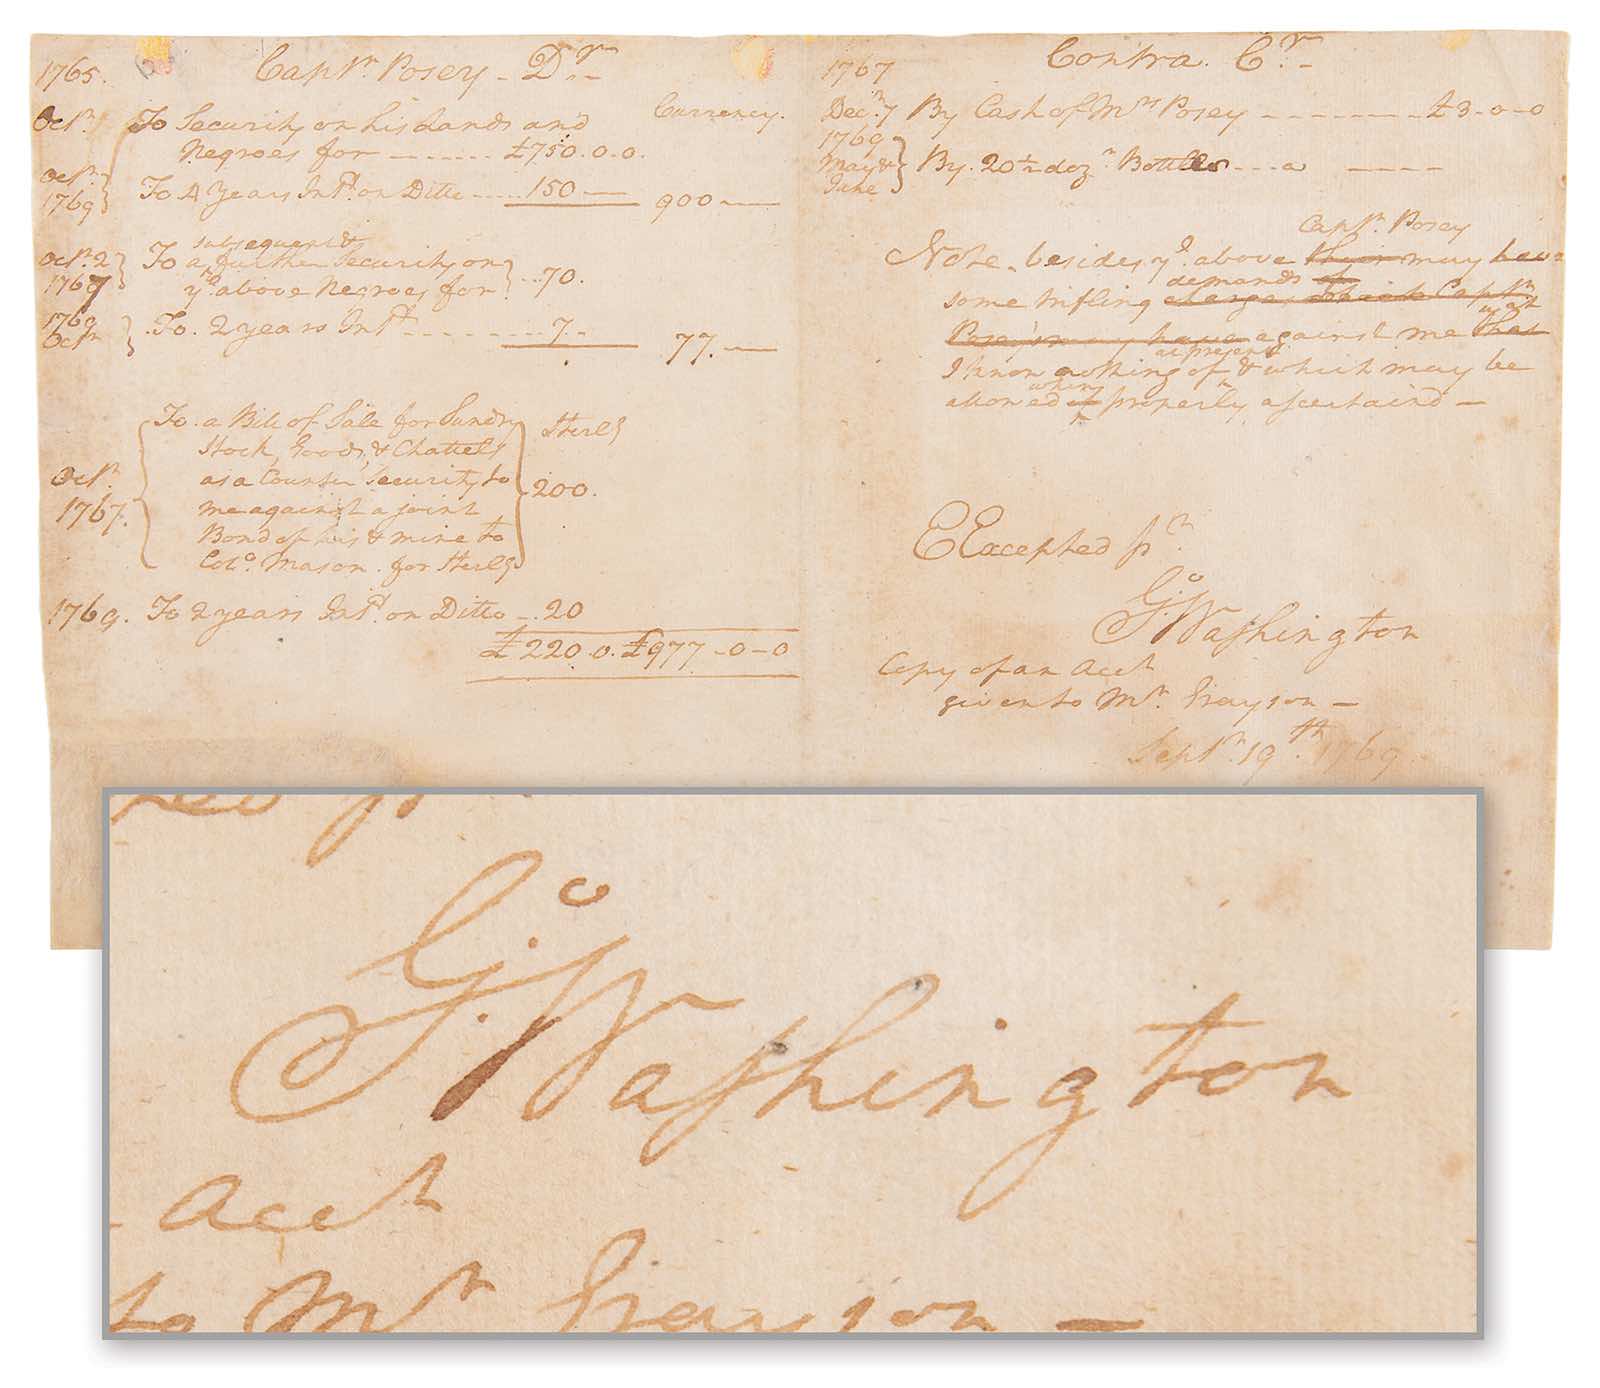 1765.
Captn. Posey - Dr.
Octr.
To Security on his Lands and
Currency.
Negroes for ------- £750.0.0.
Octr.
1769
To 4 years Intt. on Ditto ---- 150 —
900 —
subsequent &
Octr. 2
1767
To a further Security on
ye. above Negroes for - 70.
1769
Octr.
To. 2 years Intt. - - - - - - - 7 -
77. —
Octr.
1767.
To. a Bill of Sale for Sundry
Sterlg
Stock, Goods, & Chattels
as a Counter Security to
200.
me against a joint
Bond of his & mine to
Colo. Mason. for Sterlg
1769. To 2 years Intt. on Ditto - - 20
£220.0. £977-0-0
Contra. Cr.
1767
Decr. 7 By Cash of Mrs Posey - - - - - - - - £3-0-0
1769
May &
June
By. 20½ dozn. Bottles - - - a - - - -
Captn. Posey
Note. besides ye. above their may have
demands of
some trifling charges which Captn
wch
Posey may have against me that
at present
I know nothing of & which may be
when
allowed if properly ascertaind —
E Excepted pr.
Go. Washington
Copy of an Acct
given to Mr. Grayson —
Septr. 19th. 1769
Go. Washington
Acct
to Mr Grayson —